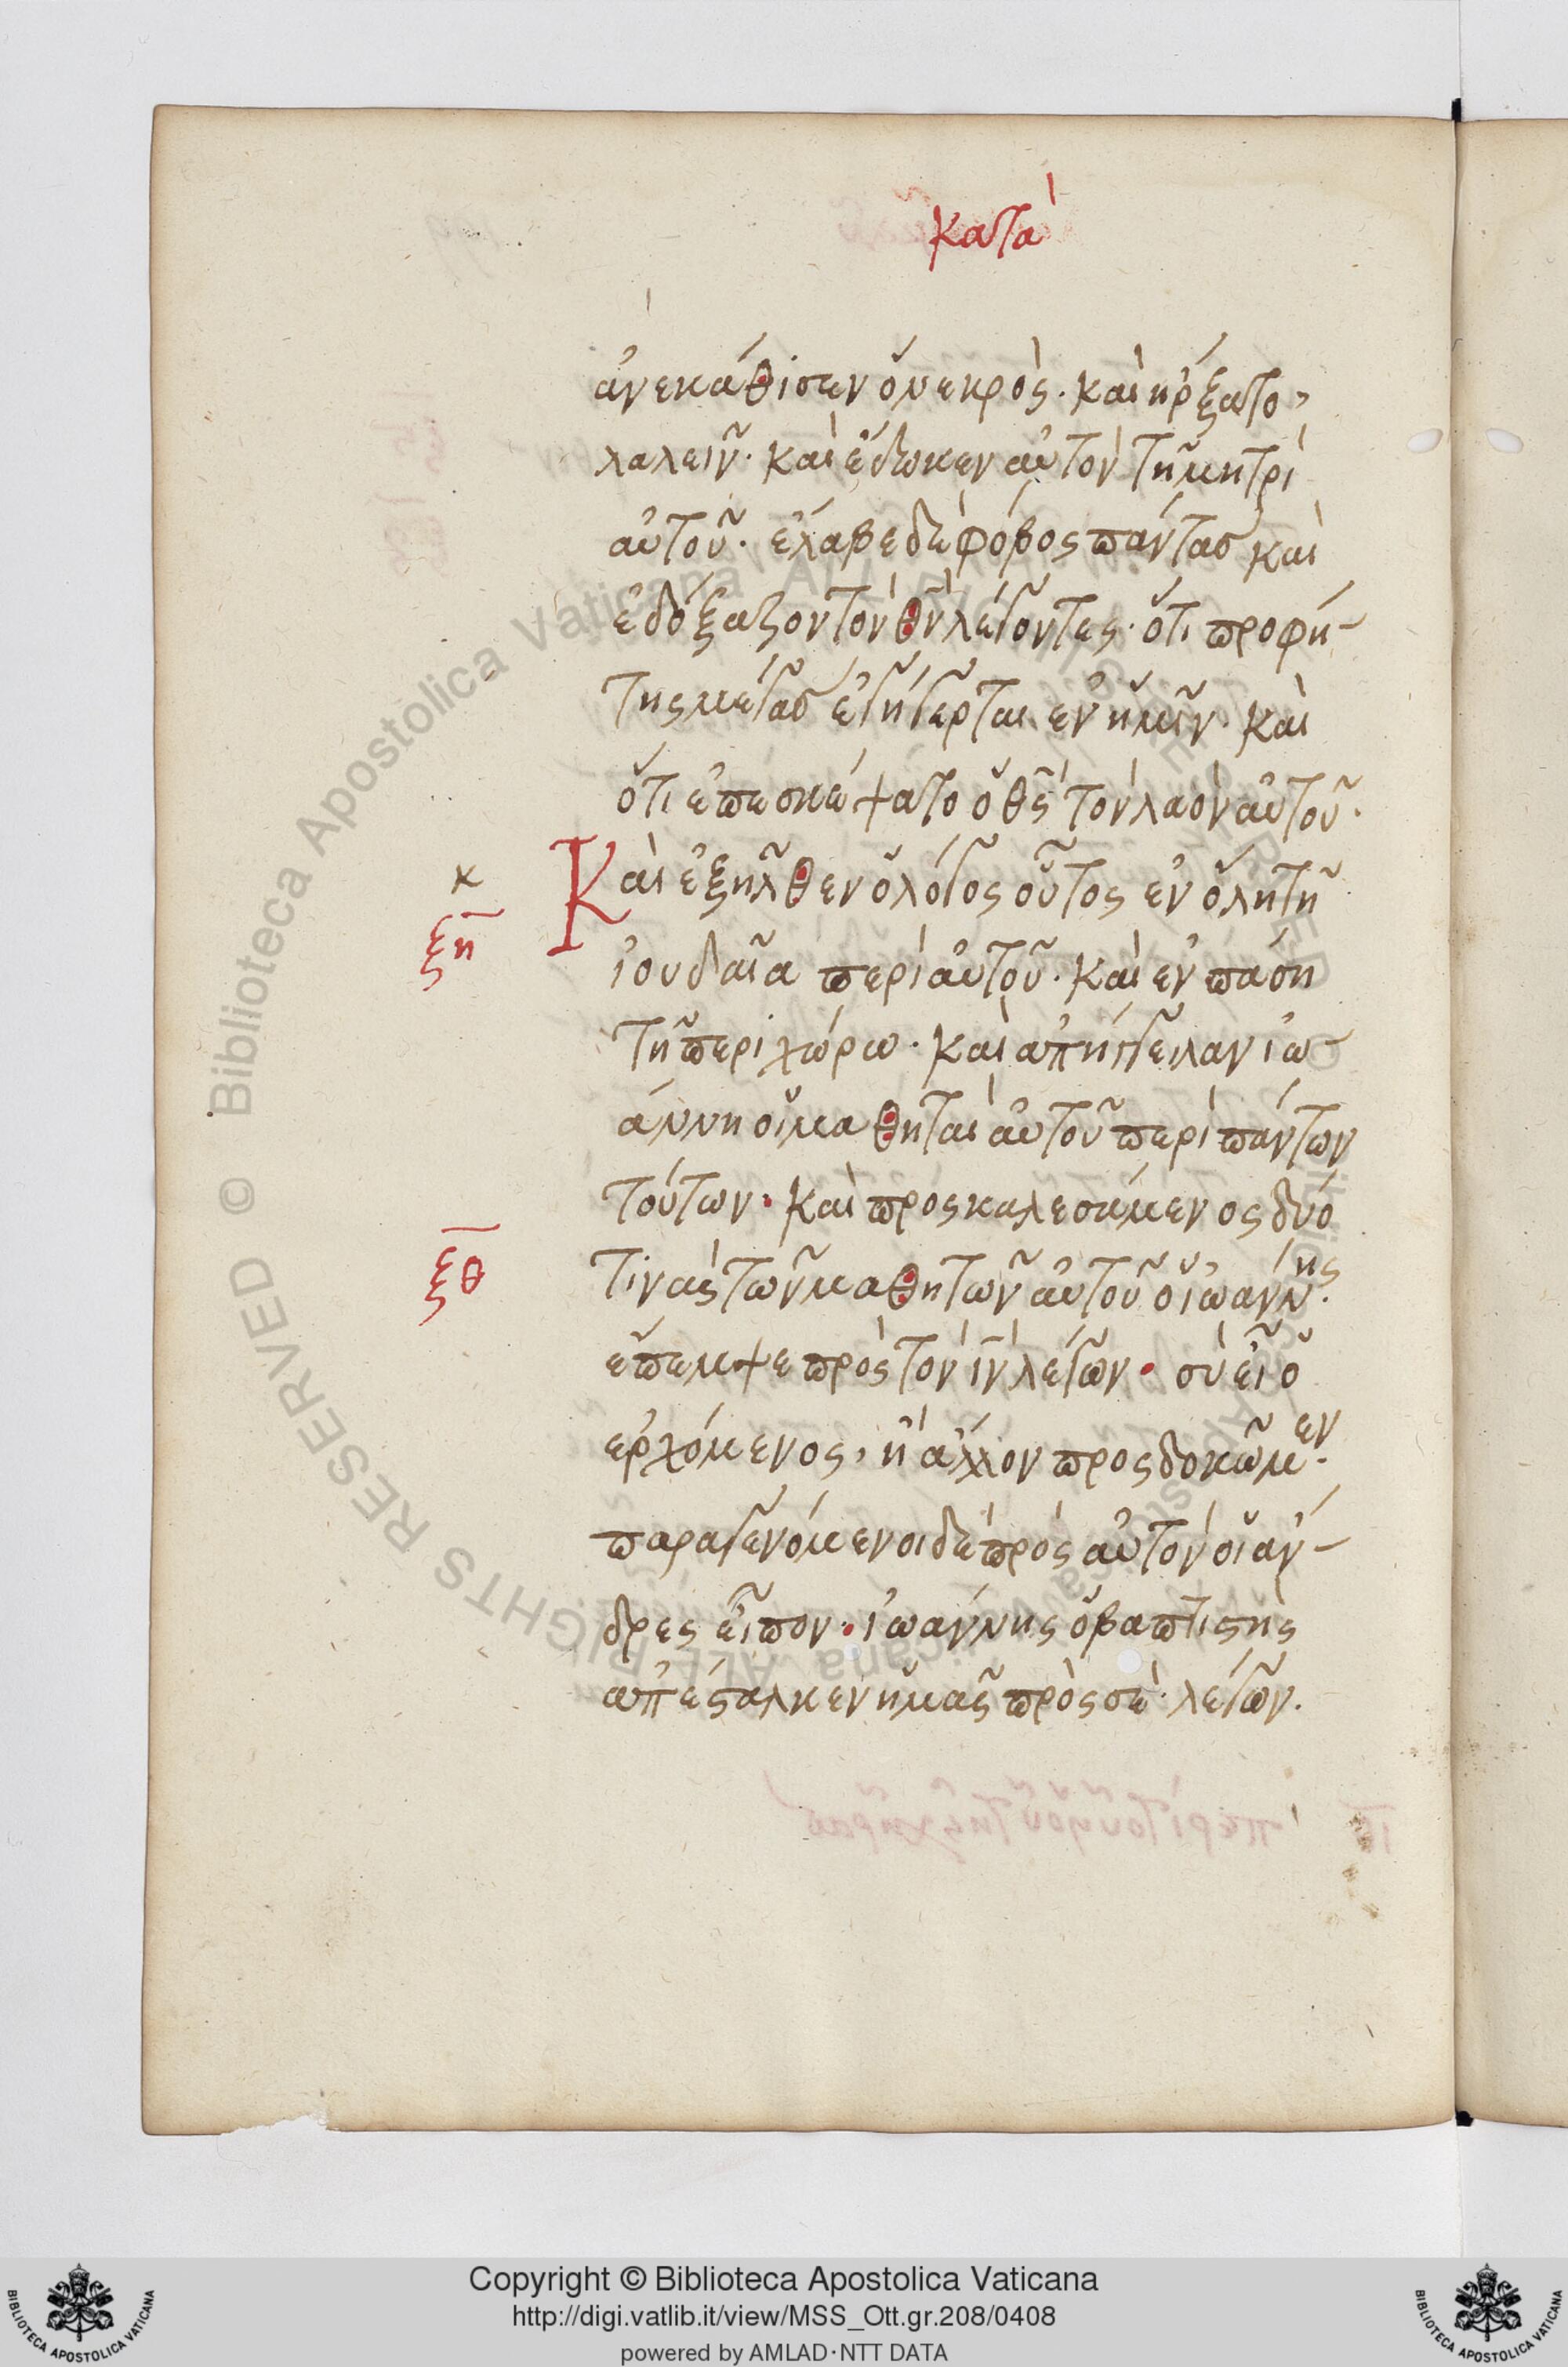 κατὰ
ἀνεκάθισεν ὁ νεκρὸς. καὶ ἠρξατο,
λαλεῖν. καὶ ἔδωκεν αὐτὸν τῆ μητρὶ
αὐτοῦ. ἔλαβε δὲ φόβος πάντασ καὶ
ἐδόξαζον τὸν θν̄ λέγοντες. ὅτι προφή-
της μέγασ ἐγήγερται ἐν ἡμῖν. καὶ
ὅτι ἐπεσκέψατο ὁ θς̄ τὸν λαὸν αὐτοῦ.
Καὶ ἐξῆλθεν ὁ λόγος οὗτος ἐν ὅλη τῆ
κ
ξη
ἰουδαῖα περὶ αὐτοῦ. καὶ ἐν πάση
τῆ περιχώρω. καὶ ἀπήγγειλαν ἰω-
άννη οἱ μαθηταὶ αὐτοῦ περὶ πάντων
τούτων. καὶ προςκαλεσάμενος δύο
ξθ
τινὰς τῶν μαθητῶν αὐτοῦ ὁ ἰωάννης.
ἔπεμψε πρὸς τὸν ιν̄ λέγων. σὺ εἶ ὁ
ἐρχόμενος, ἢ ἄλλον προςδοκῶμεν.
παραγενόμενοι δὲ πρὸς αὐτὸν οἱ ἄν-
δρες εἶπον. ἰωάννης ὁ βαπτιστὴς
ἀπέσταλκεν ἡμᾶς πρὸς σὲ. λέγων.
© Biblioteca Apostolica Vaticana ALL RIGHTS RESERVED
© Biblioteca Apostolica Vaticana ALL RIGHTS RESERVED
Copyright © Biblioteca Apostolica Vaticana
http://digi.vatlib.it/view/MSS_Ott.gr.208/0408
powered by AMLAD·NTT DATA
BIBLIOTECA APOSTOLICA VATICANA
BIBLIOTECA APOSTOLICA VATICANA